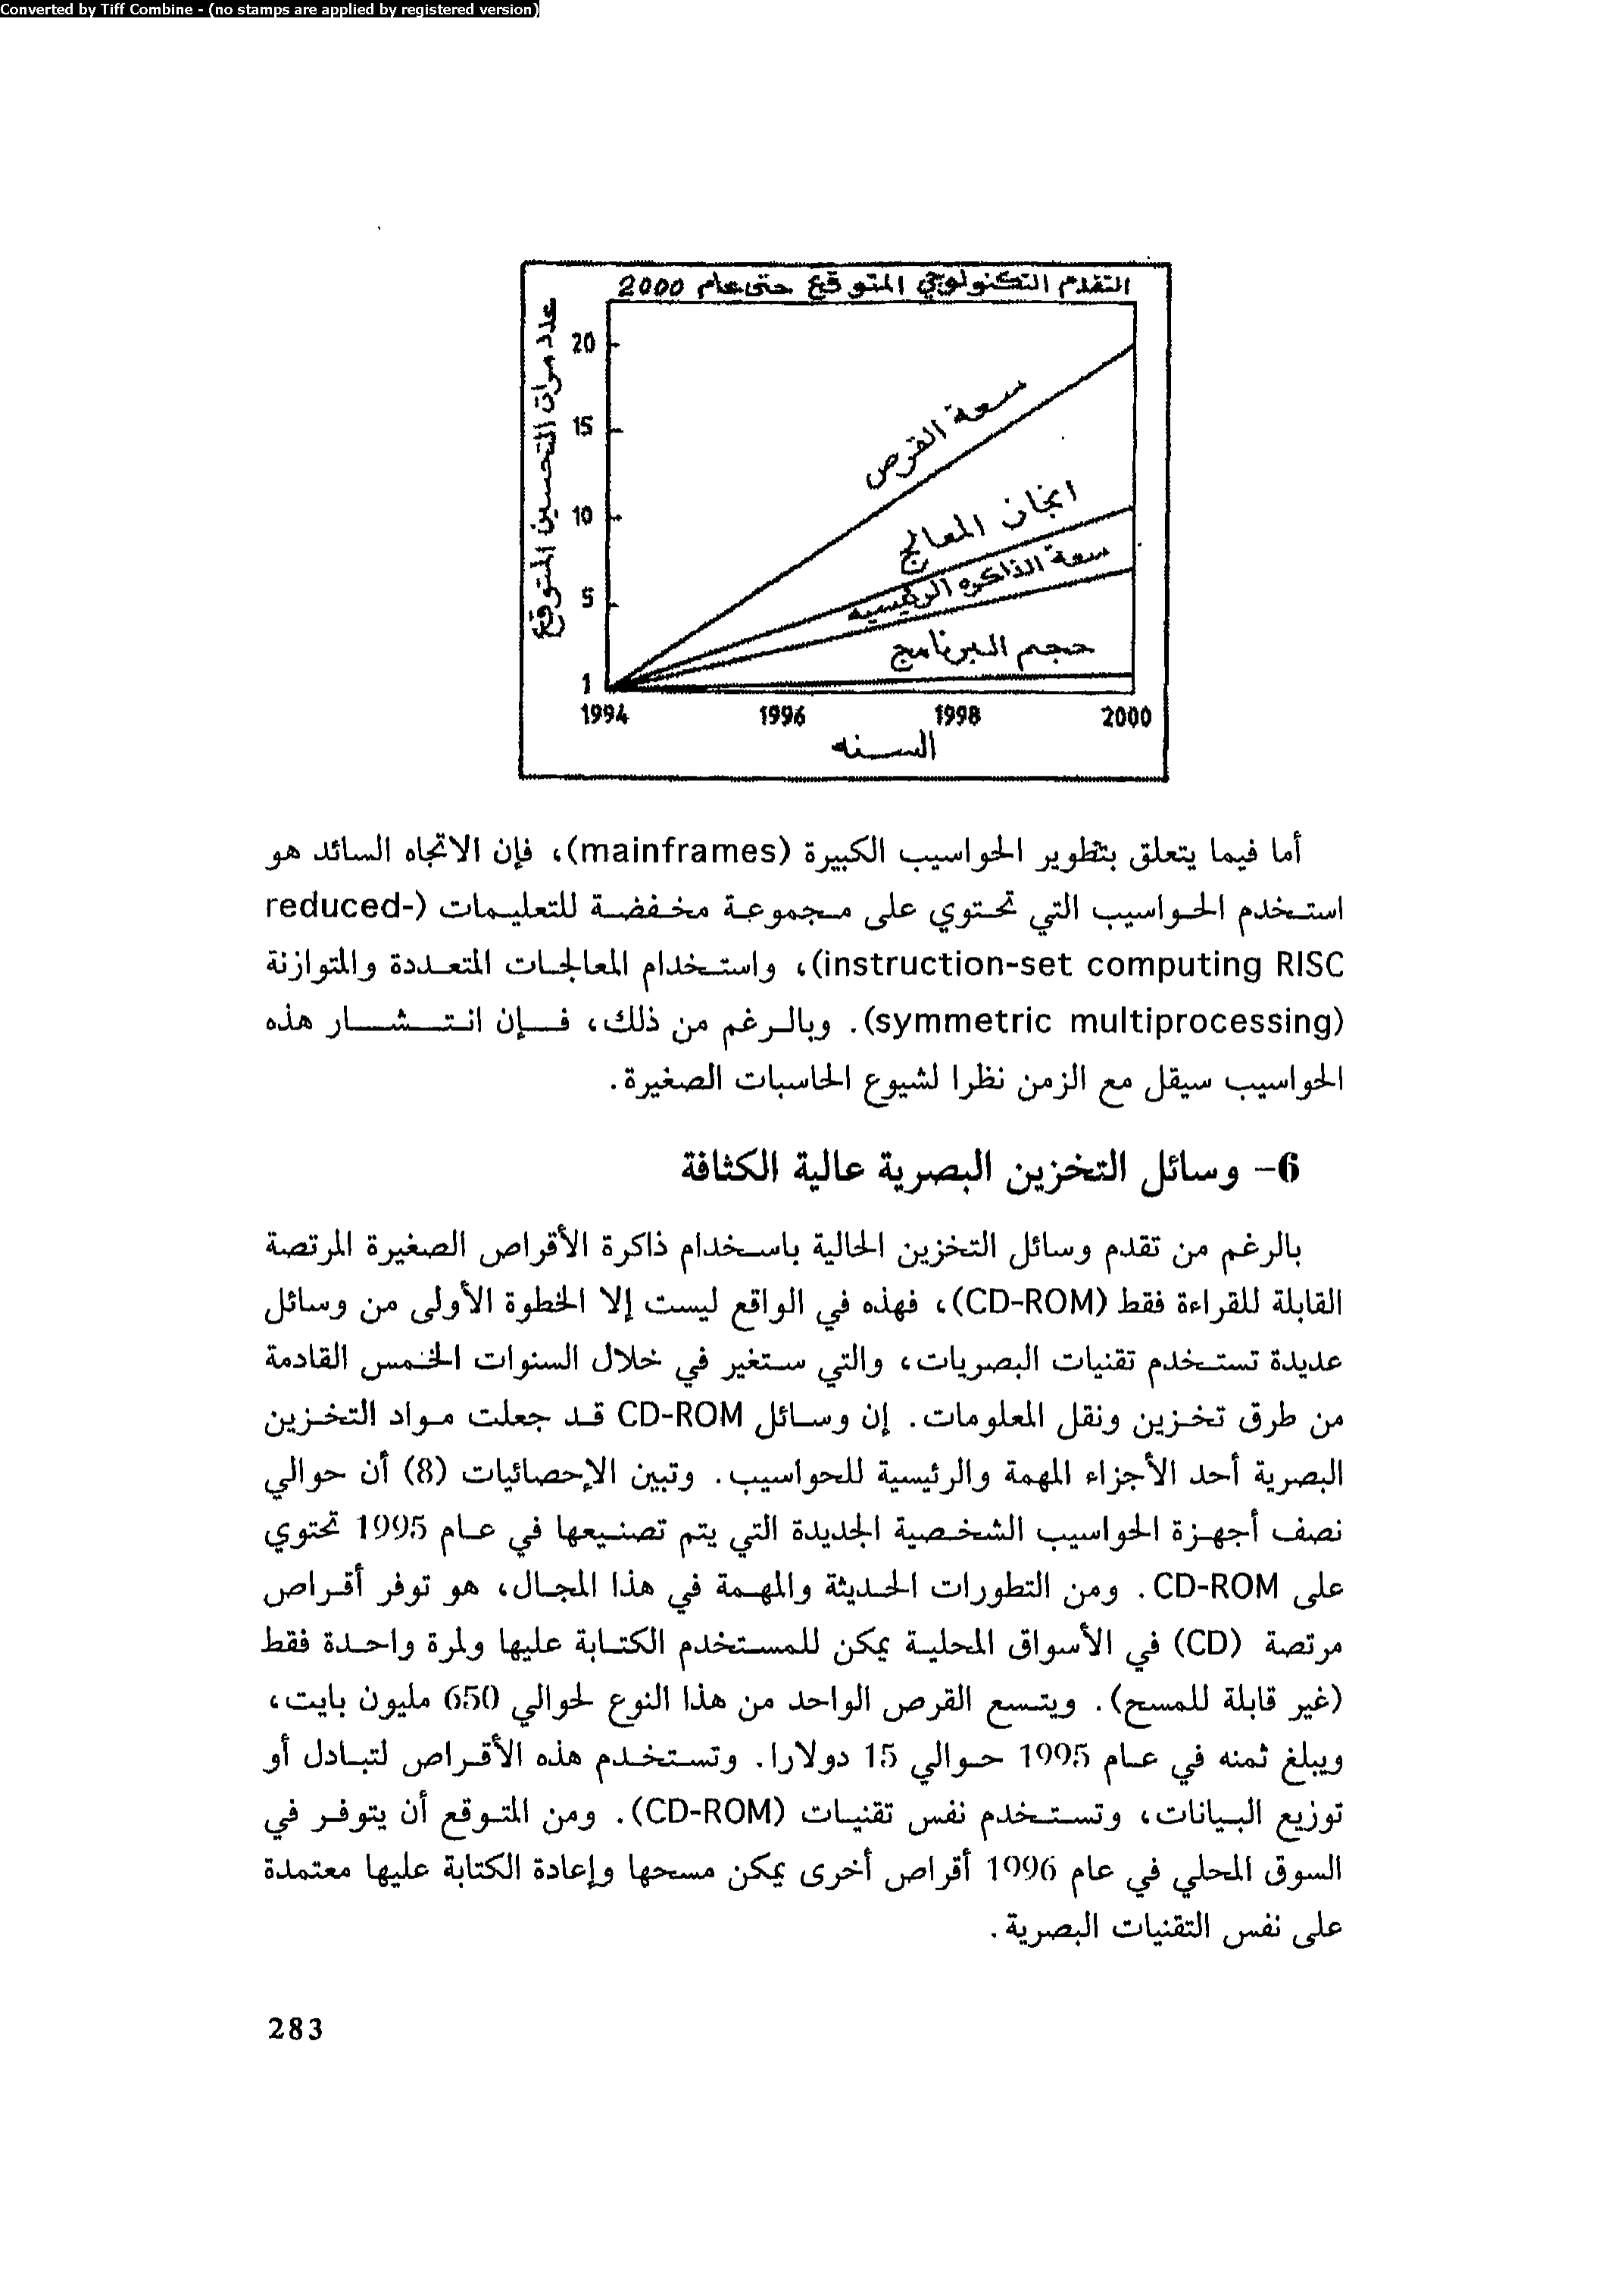 Converted by Tiff Combine - (no stamps are applied by registered version)
التقدم التكنولوجي المتوقع حتى عام 2000
عدد مرات التحسين المتوقع
20
15
10
5
1
سعة القرص
انجاز المعالج
سعة الذاكره الرئيسيه
حجم البرنامج
1994 1996 1998 2000
السنه
أما فيما يتعلق بتطوير الحواسيب الكبيرة (mainframes)، فإن الاتجاه السائد هو
استخدم الحواسيب التي تحتوي على مجموعة مخفضة للتعليمات (reduced-
instruction-set computing RISC)، واستخدام المعالجات المتعددة والمتوازنة
(symmetric multiprocessing). وبالرغم من ذلك، فإن انتشار هذه
الحواسيب سيقل مع الزمن نظرا لشيوع الحاسبات الصغيرة.
6- وسائل التخزين البصرية عالية الكثافة
بالرغم من تقدم وسائل التخزين الحالية باستخدام ذاكرة الأقراص الصغيرة المرتصة
القابلة للقراءة فقط (CD-ROM)، فهذه في الواقع ليست إلا الخطوة الأولى من وسائل
عديدة تستخدم تقنيات البصريات، والتي ستغير في خلال السنوات الخمس القادمة
من طرق تخزين ونقل المعلومات. إن وسائل CD-ROM قد جعلت مواد التخزين
البصرية أحد الأجزاء المهمة والرئيسية للحواسيب. وتبين الإحصائيات (8) أن حوالي
نصف أجهزة الحواسيب الشخصية الجديدة التي يتم تصنيعها في عام 1995 تحتوي
على CD-ROM. ومن التطورات الحديثة والمهمة في هذا المجال، هو توفر أقراص
مرتصة (CD) في الأسواق المحلية يمكن للمستخدم الكتابة عليها ولمرة واحدة فقط
(غير قابلة للمسح). ويتسع القرص الواحد من هذا النوع لحوالي 650 مليون بايت،
ويبلغ ثمنه في عام 1995 حوالي 15 دولارا. وتستخدم هذه الأقراص لتبادل أو
توزيع البيانات، وتستخدم نفس تقنيات (CD-ROM). ومن المتوقع أن يتوفر في
السوق المحلي في عام 1996 أقراص أخرى يمكن مسحها وإعادة الكتابة عليها معتمدة
على نفس التقنيات البصرية.
283